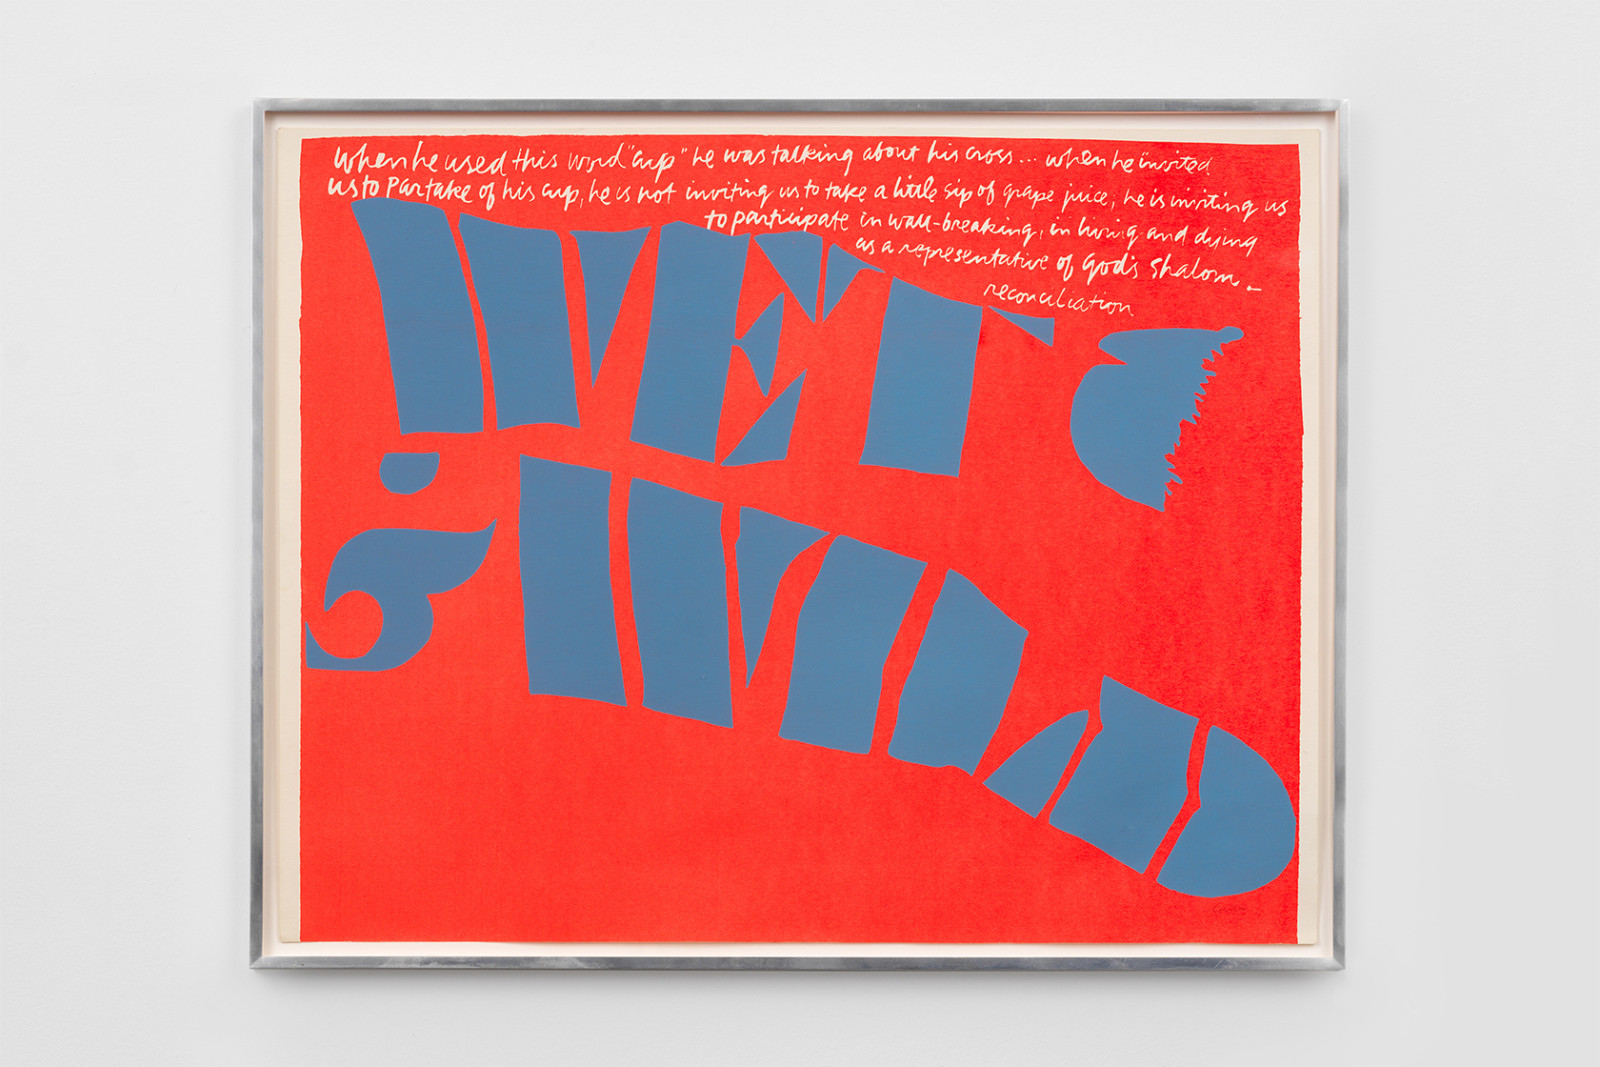 when he used this word "cup" he was talking about his cross... when he invited
us to partake of his cup, he is not inviting us to take a little sip of grape juice, he is inviting us
to participate in wall-breaking, in living and dying
as a representative of God's Shalom. -
reconciliation
WET &
WILD